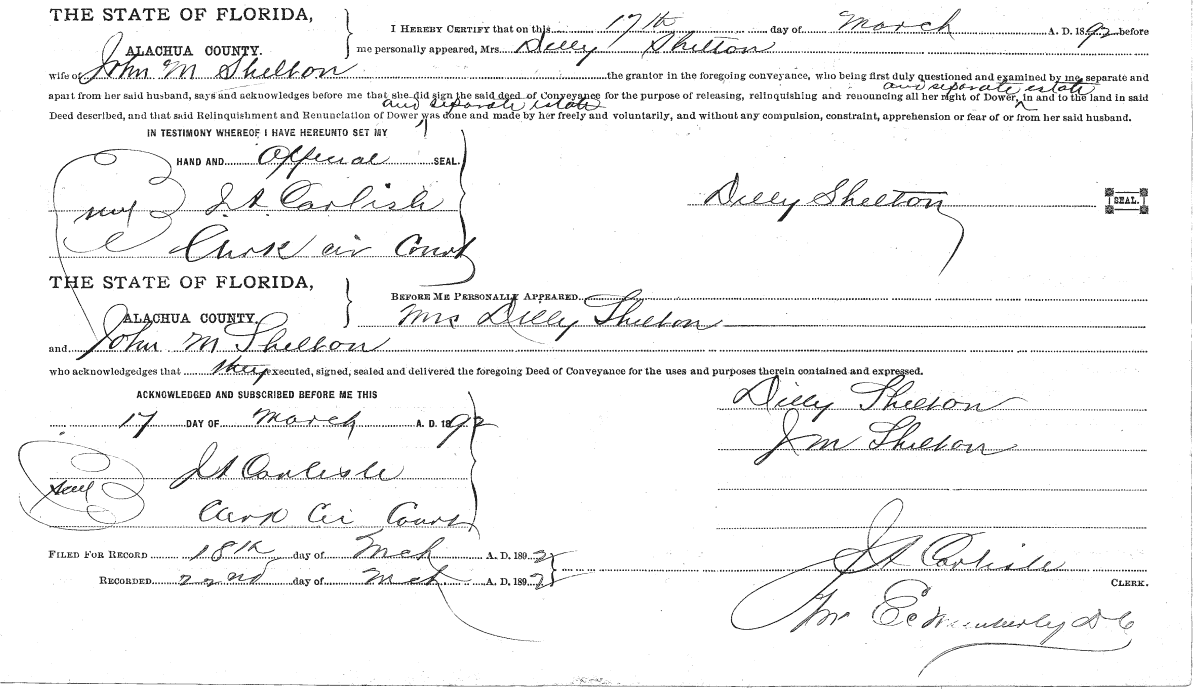 THE STATE OF FLORIDA,
ALACHUA COUNTY.
I HEREBY CERTIFY that on this 17th day of March A. D. 1892 before
me personally appeared, Mrs. Dilly Shelton
wife of John M Shelton the grantor in the foregoing conveyance, who being first duly questioned and examined by me, separate and
and separate estate
apart from her said husband, says and acknowledges before me that she did sign the said deed of Conveyance for the purpose of releasing, relinquishing and renouncing all her right of Dower, in and to the land in said
and separate estate
Deed described, and that said Relinquishment and Renunciation of Dower was done and made by her freely and voluntarily, and without any compulsion, constraint, apprehension or fear of or from her said husband.
IN TESTIMONY WHEREOF, I HAVE HEREUNTO SET MY
HAND AND Official SEAL.
J A Carlisle
Clerk Cir Court
Dilly Shelton SEAL.
THE STATE OF FLORIDA,
ALACHUA COUNTY.
BEFORE ME PERSONALLY APPEARED
Mrs Dilly Shelton
and John M Shelton
who acknowledgeds that they executed, signed, sealed and delivered the foregoing Deed of Conveyance for the uses and purposes therein contained and expressed.
ACKNOWLEDGED AND SUBSCRIBED BEFORE ME THIS
17 DAY OF March A. D. 1892
Seal
J A Carlisle
Clerk Cir Court
Dilly Shelton
J M Shelton
FILED FOR RECORD 18th day of Mch A. D. 1892
RECORDED 22nd day of Mch A. D. 1892
J A Carlisle
CLERK.
Wimberly D C